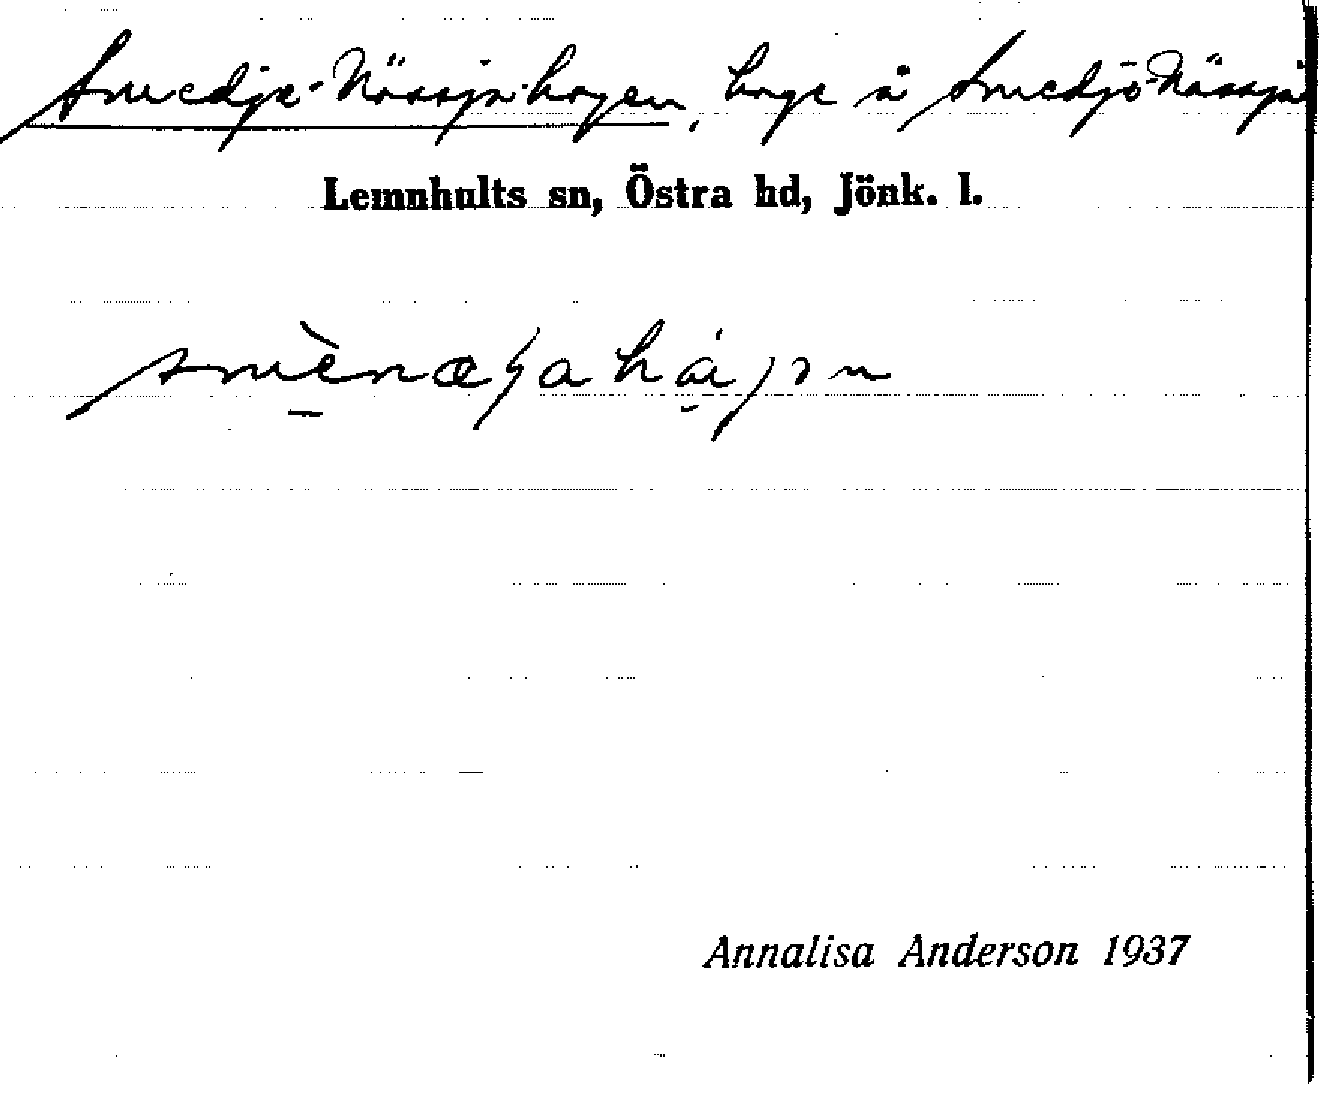 Smedje-Nässja-hagen, hage å Smedjö-Nässja
Lemnhults sn, Östra hd, Jönk. l.
Annalisa Anderson 1937